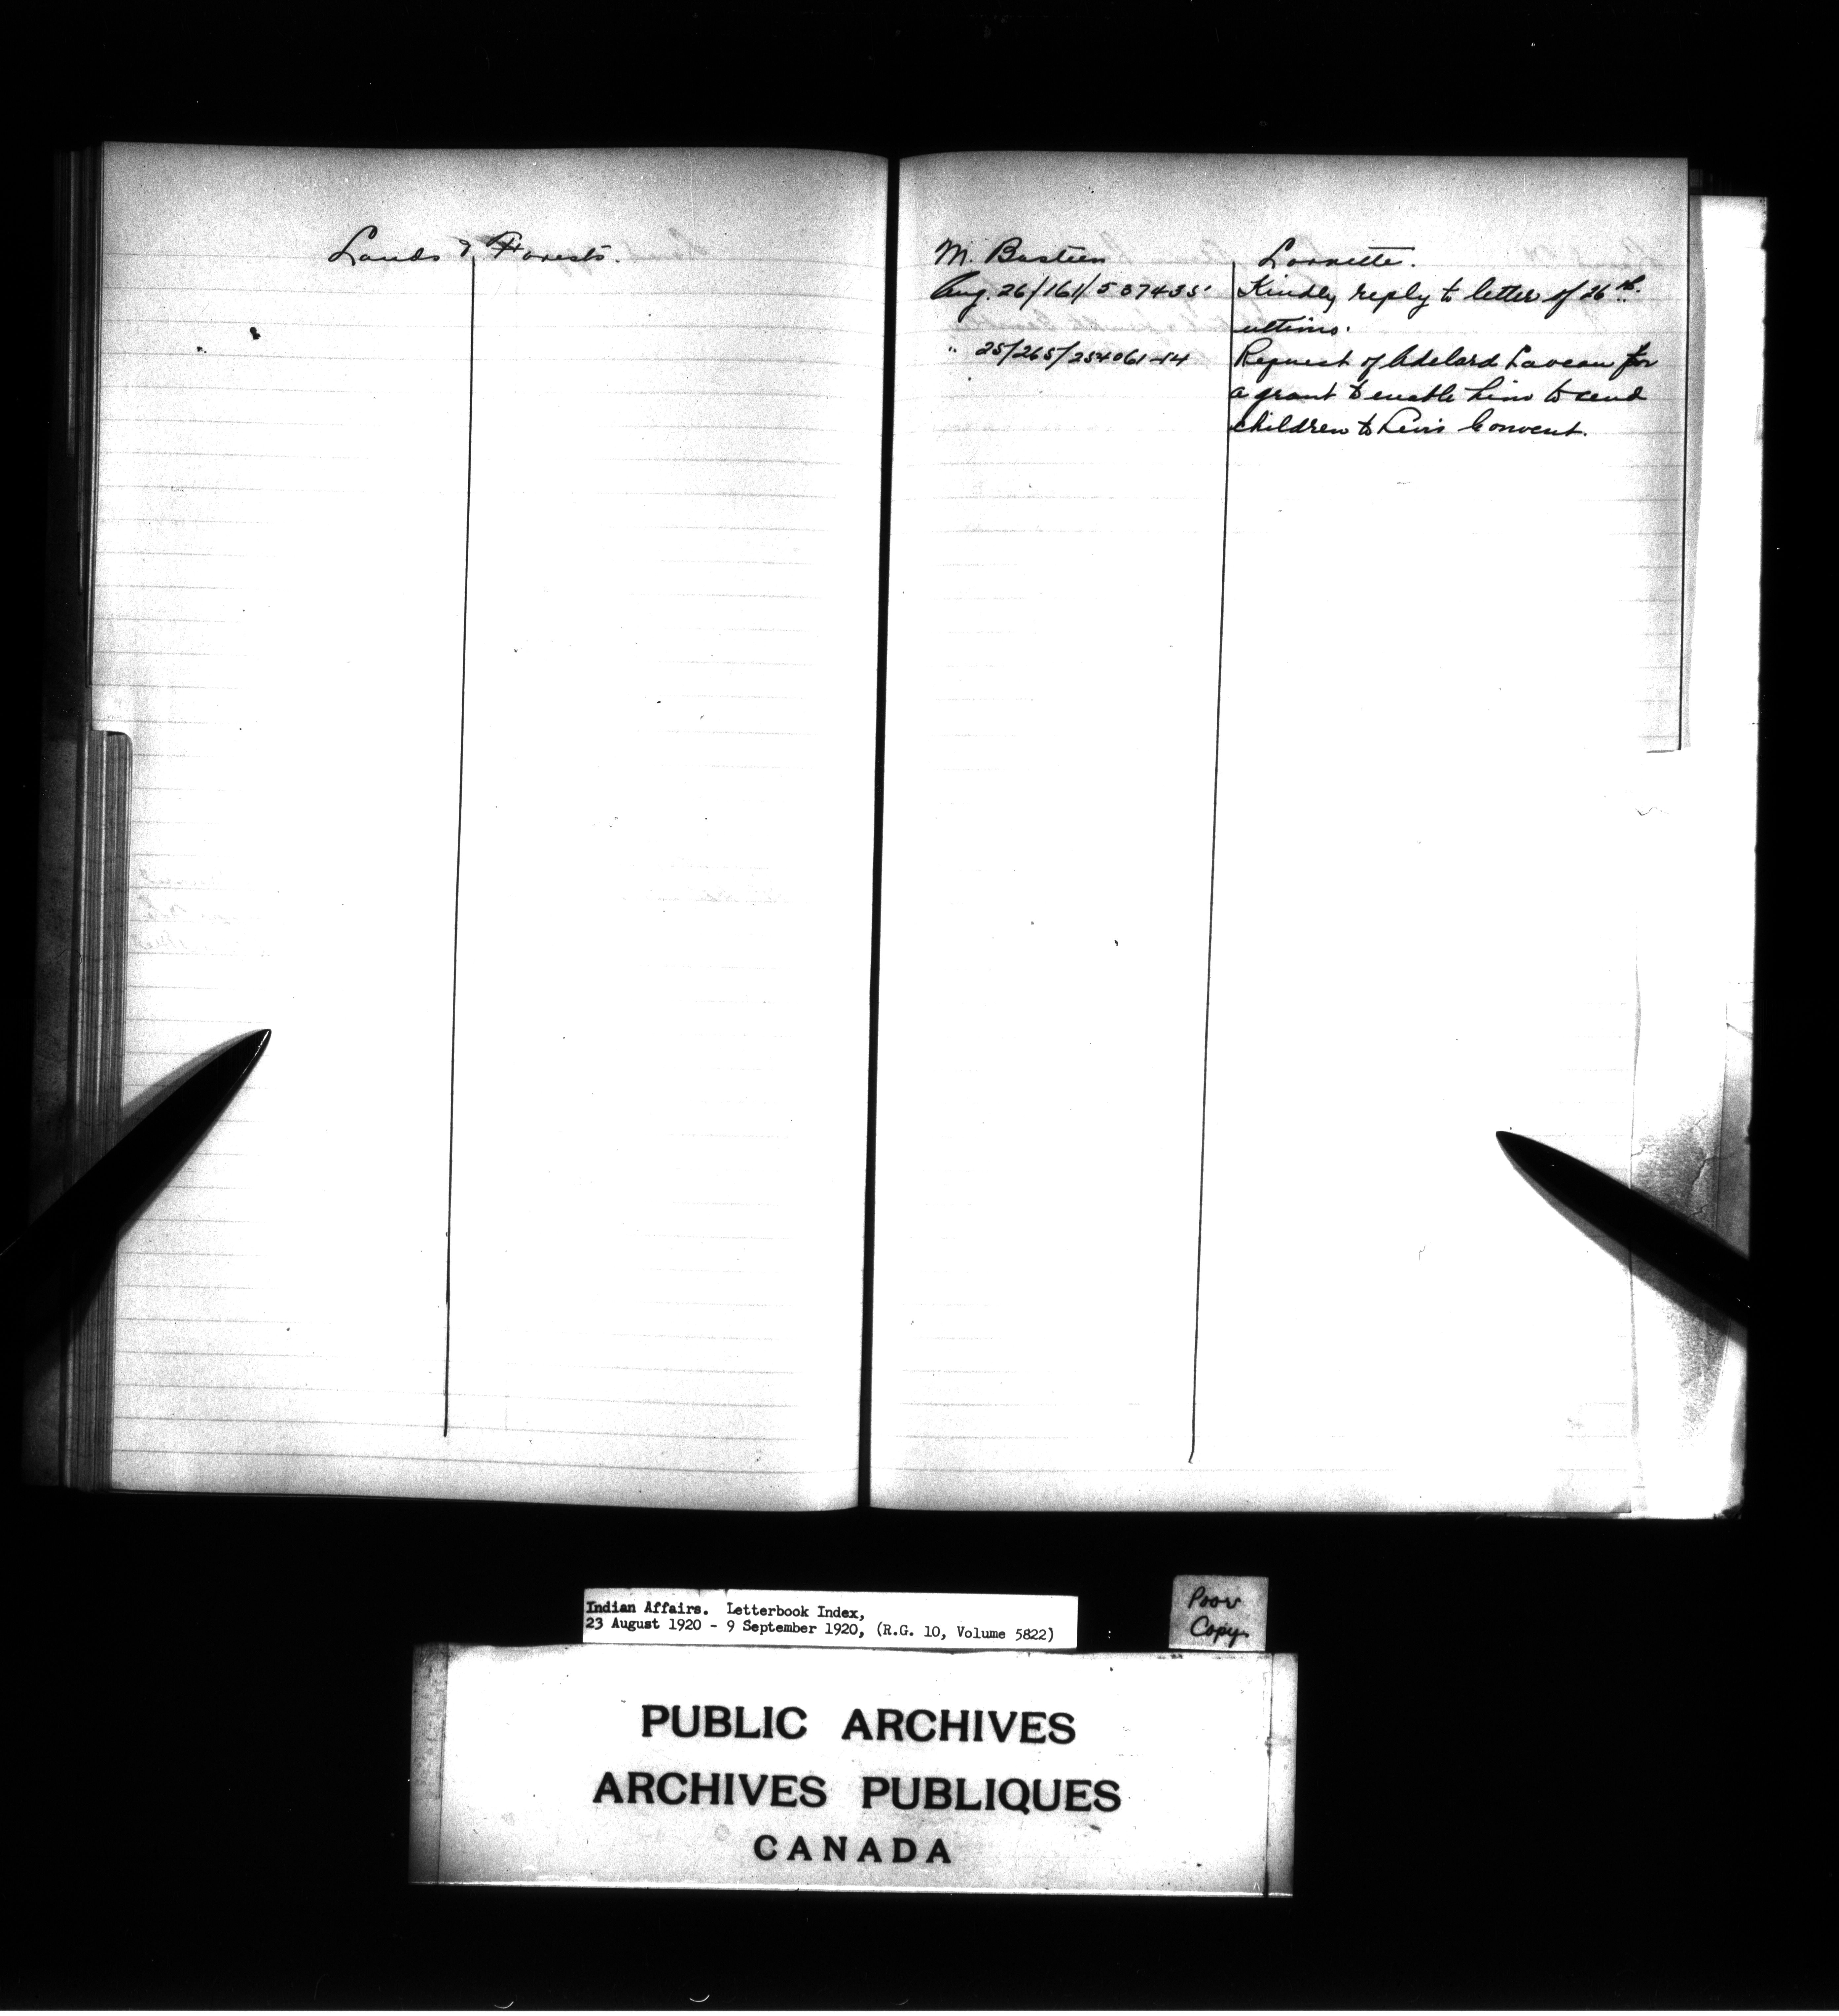 Lands & Forests.
M. Bastien Lorrette.
Aug. 26/161/537435. Kindly reply to letter of 26th.
ultimo.
" 25/265/254061-14 Request of Adelard Laveau for
a grant to enable him to send
children to Levis Convent.
Indian Affairs. Letterbook Index,
23 August 1920 - 9 September 1920, (R.G. 10, Volume 5822)
Poor
Copy.
PUBLIC ARCHIVES
ARCHIVES PUBLIQUES
CANADA